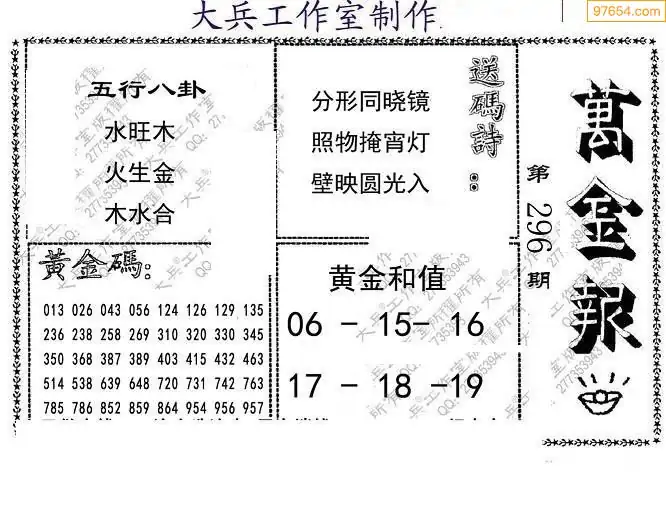 大兵工作室制作
97654.com
五行八卦
水旺木
火生金
木水合
送碼詩:
分形同晓镜
照物掩宵灯
壁映圆光入
萬金報
第296期
黃金碼:
013 026 043 056 124 126 129 135
236 238 258 269 310 320 330 345
350 368 387 389 403 415 432 463
514 538 639 648 720 731 742 763
785 786 852 859 864 954 956 957
黄金和值
06 - 15- 16
17 - 18 -19